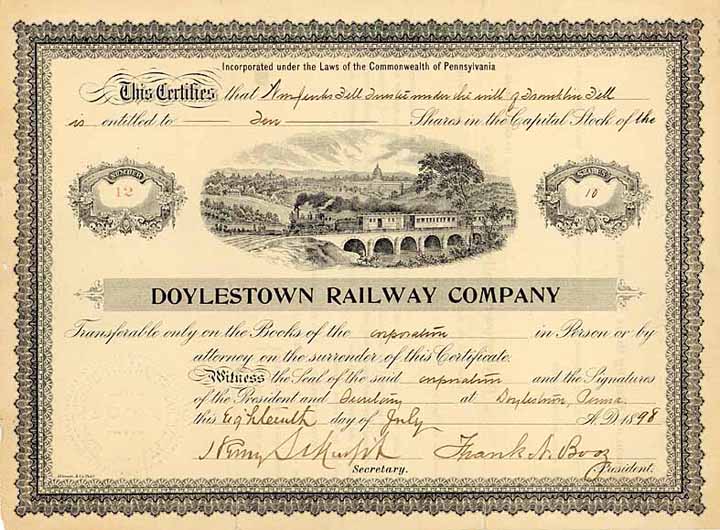 Incorporated under the Laws of the Commonwealth of Pennsylvania
This Certifies that Wm Jenks Fell Trustee under the will of Franklin Fell
is entitled to Ten Shares in the Capital Stock of the
NUMBER
12
SHARES
10
DOYLESTOWN RAILWAY COMPANY
Transferable only on the Books of the corporation in Person or by
attorney on the surrender of this Certificate.
Witness the Seal of the said corporation and the Signatures
of the President and Secretary at Doylestown, Penna.
this Eighteenth day of July A.D. 1898
Henry Frank N. Booz
Secretary. President.